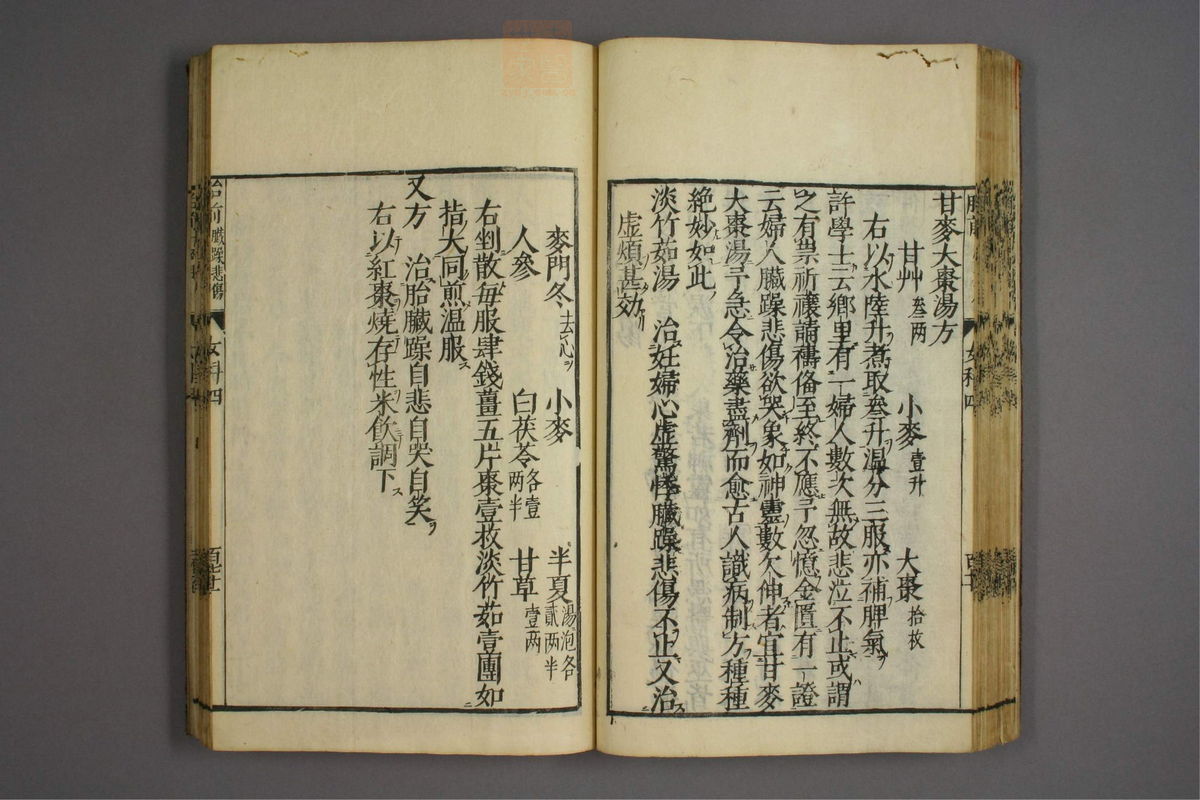 甘麥大棗湯方
甘艸叁两 小麥壹升 大棗拾枚
右以水陸升煮取叁升温分三服亦補脾氣
許學士云鄉里有一婦人數次無故悲泣不止或謂
之有祟祈禳請禱俻至終不應予忽憶金匱有一證
云婦人臓躁悲傷欲哭象如神靈數欠伸者宜甘麥
大棗湯予急令治藥盡劑而愈古人識病制方種種
絶妙如此
淡竹茹湯 治妊婦心虚驚悸臓躁悲傷不止又治
虚煩甚効
麥門冬去心 小麥 半夏湯泡各貳两半
人參 白茯苓各壹两半 甘草壹两
右剉散每服肆錢薑五片棗壹枚淡竹茹壹團如
指大同煎温服
又方 治胎臓躁自悲自哭自笑
右以紅棗燒存性米飲調下
胎前臓躁悲傷
女科四